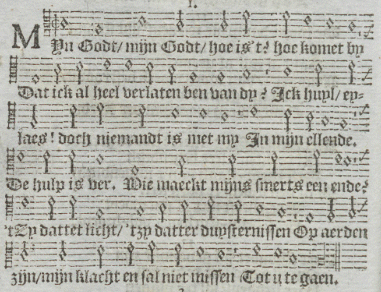 1.
MYn Godt/ mijn Godt/ hoe is't? hoe komet by
Dat ick al heel verlaten ben van dy? Ick huyl/ ey-
laes! doch niemandt is met my In mijn ellende.
De hulp is ver. Wie maeckt mijns smerts een ende?
'tZy dattet licht/ 'tzy datter duysternissen Op aerden
zijn/mijn klacht en sal niet missen Tot u te gaen.